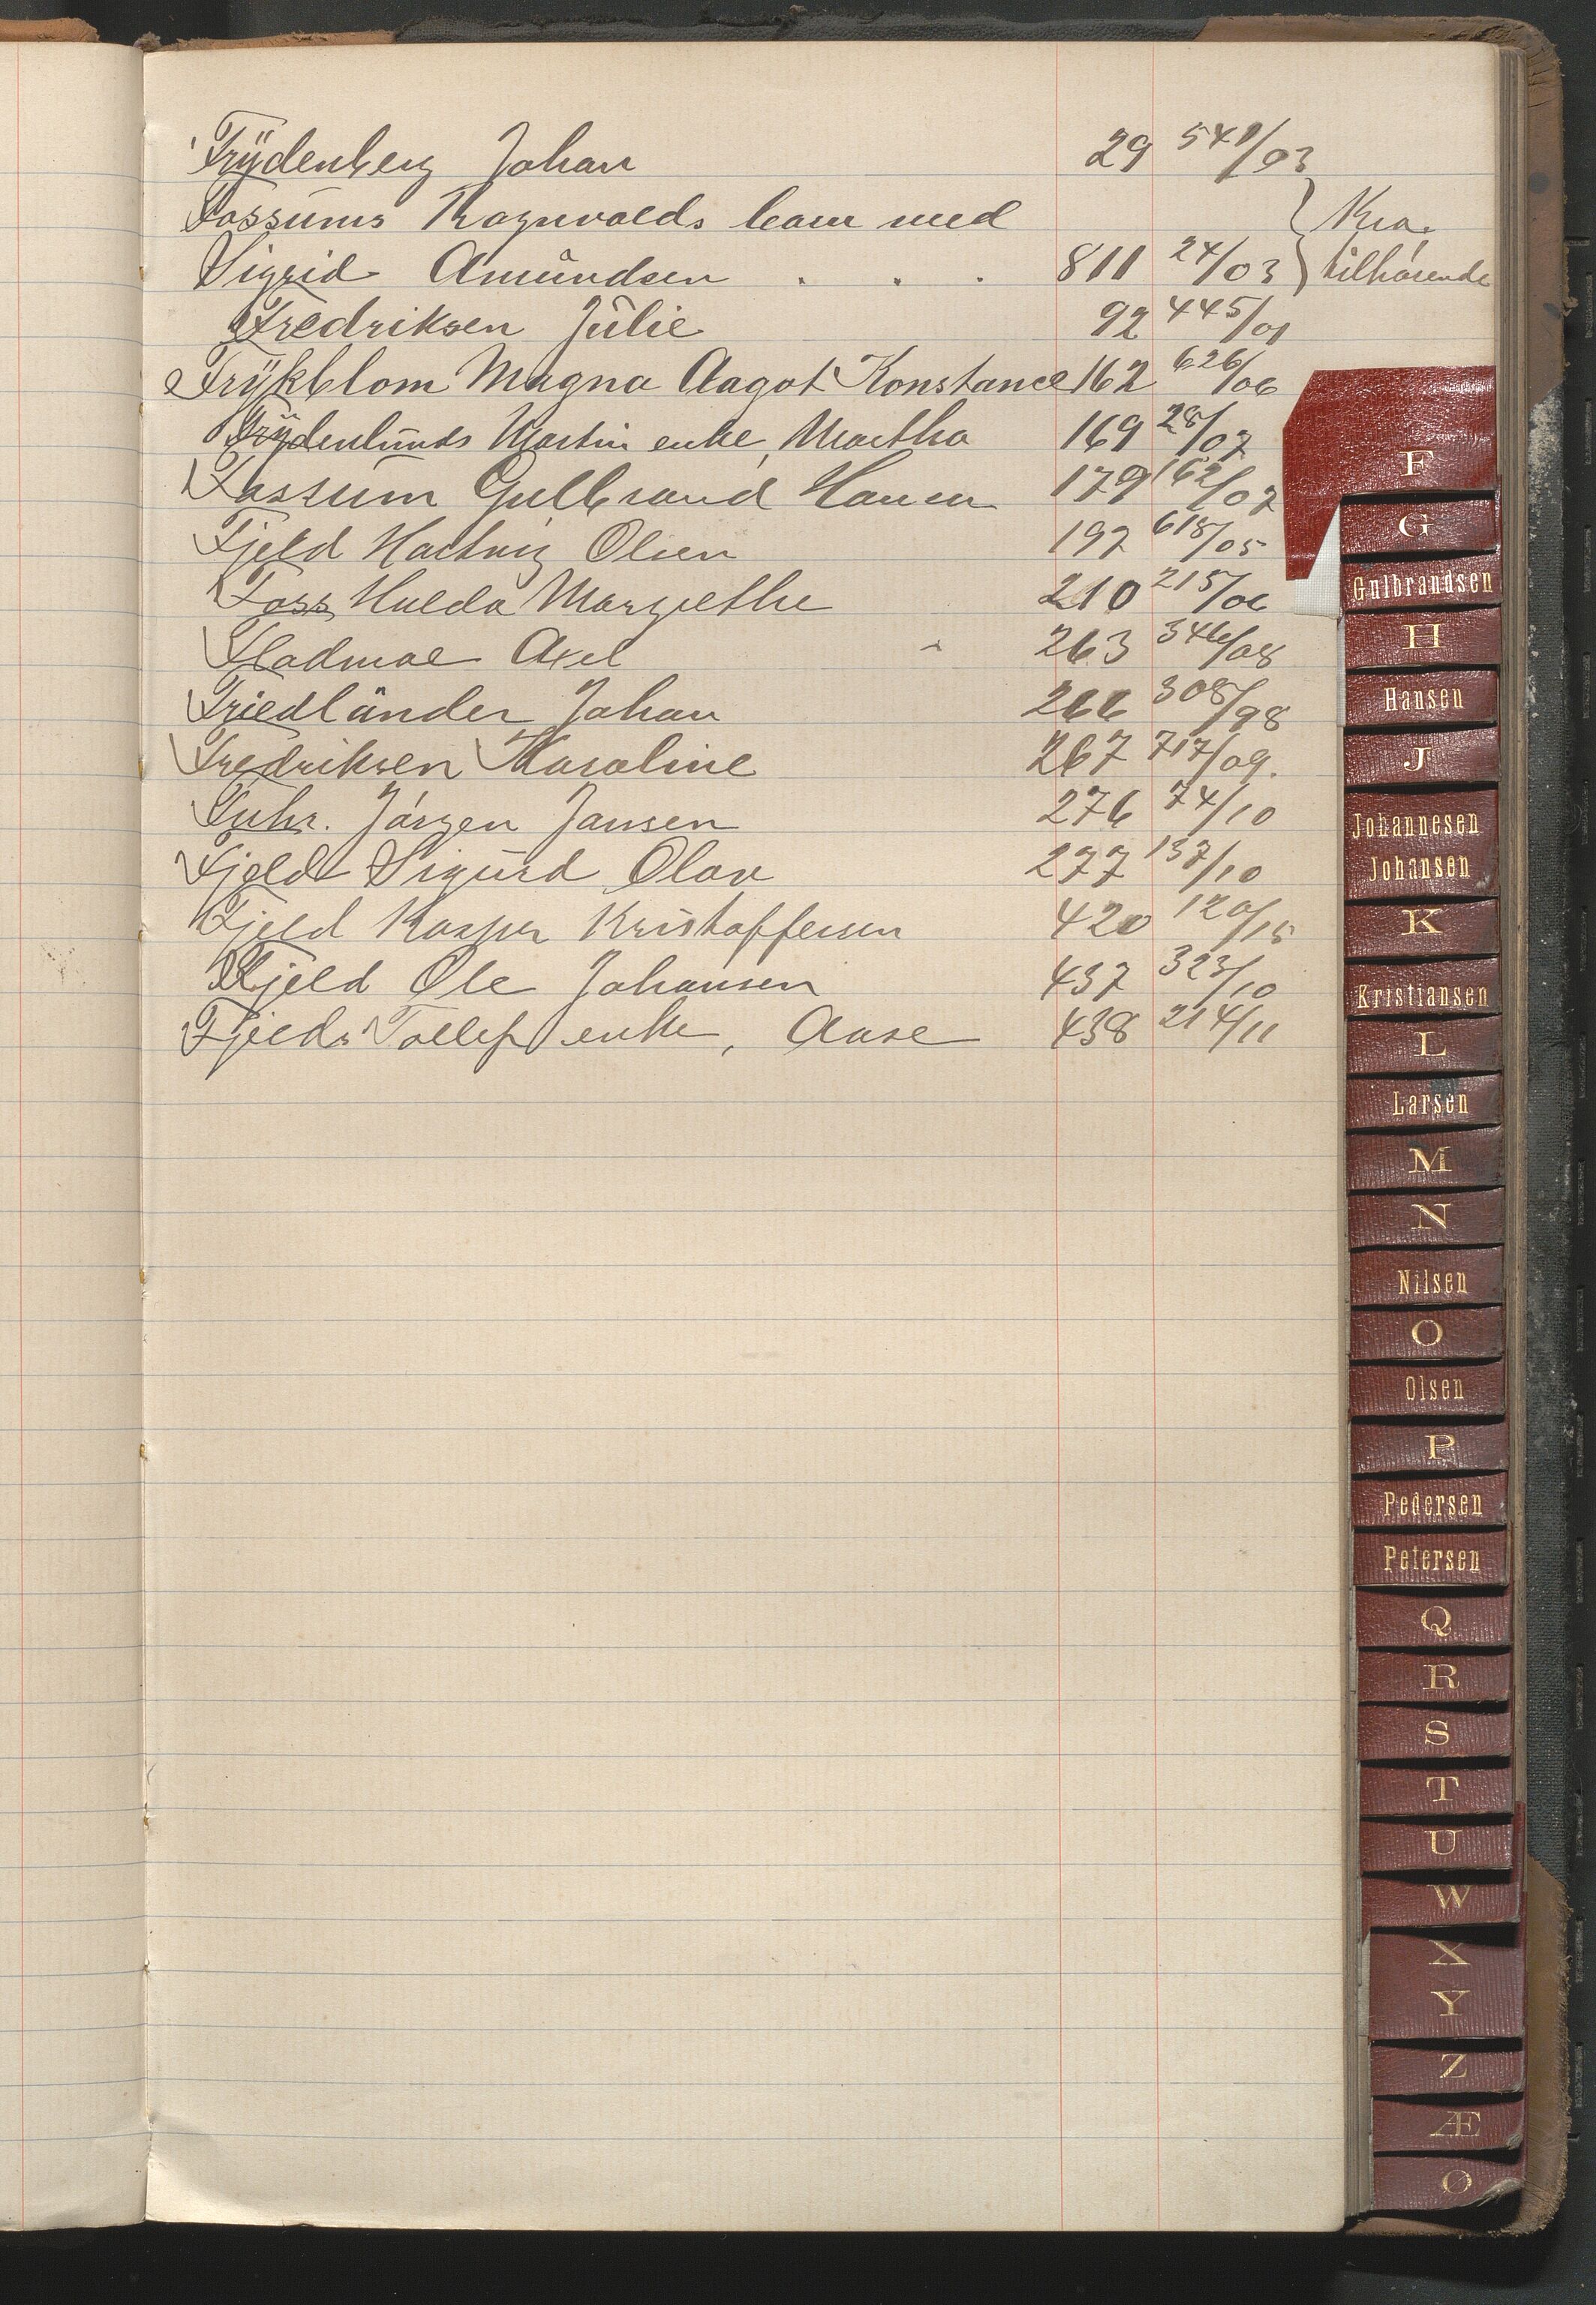 Frydenberg Johan 29 541/03
Fossums Ragnvalds barn med } Kra.
Sigrid Amundsen . . . 811 24/03 } tilhørende
Fredriksen Julie 92 445/01
Frykblom Magna Aagot Konstance 162 626/06
Frydenlunds Martin enke, Martha 169 28/07
Fossum Gulbrand Hansen 179 162/07
Fjeld Hartvig Olsen 197 618/05
Foss Hulda Margrethe 210 215/06
Fladmoe Axel 263 346/08
Friedländer Johan 266 308/98
Fredriksen Karoline 267 717/09.
Fuhr. Jørgen Jansen 276 74/10
Fjeld Sigurd Olav 277 137/10
Fjeld Kasper Kristoffersen 420 120/15
Fjeld Ole Johansen 437 323/10
Fjelds Tollef enke, Aase 438 214/11
F
G
Gulbrandsen
H
Hansen
J
Johannesen
Johansen
K
Kristiansen
L
Larsen
M
N
Nilsen
O
Olsen
P
Pedersen
Petersen
Q
R
S
T
U
W
X
Y
Z
Æ
Ø